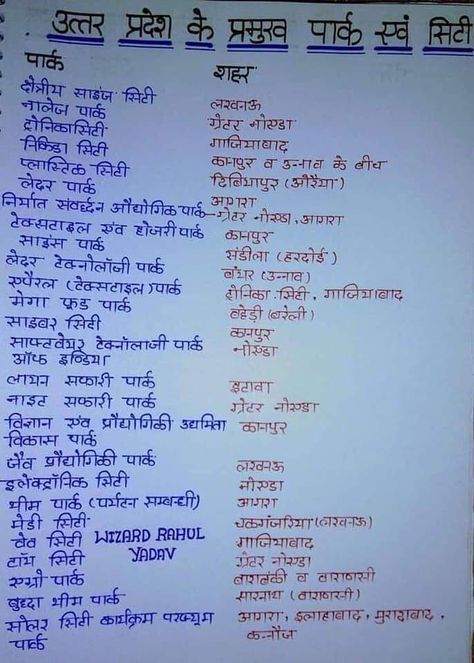 उत्तर प्रदेश के प्रमुख पार्क एवं सिटी
पार्क शहर
क्षेत्रीय साइंज सिटी लखनऊ
नालेज पार्क ग्रेटर नोएडा
ट्रोनिकासिटी गाजियाबाद
निकिडा सिटी कानपुर व उन्नाव के बीच
प्लास्टिक सिटी दिबियापुर (औरैया)
लेदर पार्क आगरा
निर्यात संवर्द्धन औद्योगिक पार्क-ग्रेटर नोएडा, आगरा
टेक्सटाइल एवं होजरी पार्क कानपुर
साइंस पार्क संडीला (हरदोई)
लेदर टेक्नोलॉजी पार्क बंथर (उन्नाव)
एपैरल (टेक्सटाइल) पार्क ट्रोनिका सिटी, गाजियाबाद
मेगा फूड पार्क बहेड़ी (बरेली)
साइबर सिटी कानपुर
साफ्टवेयर टेक्नॉलाजी पार्क नोएडा
ऑफ इण्डिया
लायन सफारी पार्क इटावा
नाइट सफारी पार्क ग्रेटर नोएडा
विज्ञान एवं प्रौद्योगिकी उद्यमिता कानपुर
विकास पार्क
जैव प्रौद्योगिकी पार्क लखनऊ
इलेक्ट्रॉनिक सिटी नोएडा
थीम पार्क (पर्यटन सम्बन्धी) आगरा
मेडी सिटी चकगंजरिया (लखनऊ)
वेव सिटी WIZARD RAHUL गाजियाबाद
टॉय सिटी YADAV ग्रेटर नोएडा
एग्रो पार्क बाराबंकी व वाराणसी
बुद्धा थीम पार्क सारनाथ (वाराणसी)
सोलर सिटी कार्यक्रम परफ्यूम आगरा, इलाहाबाद, मुरादाबाद,
पार्क कन्नौज